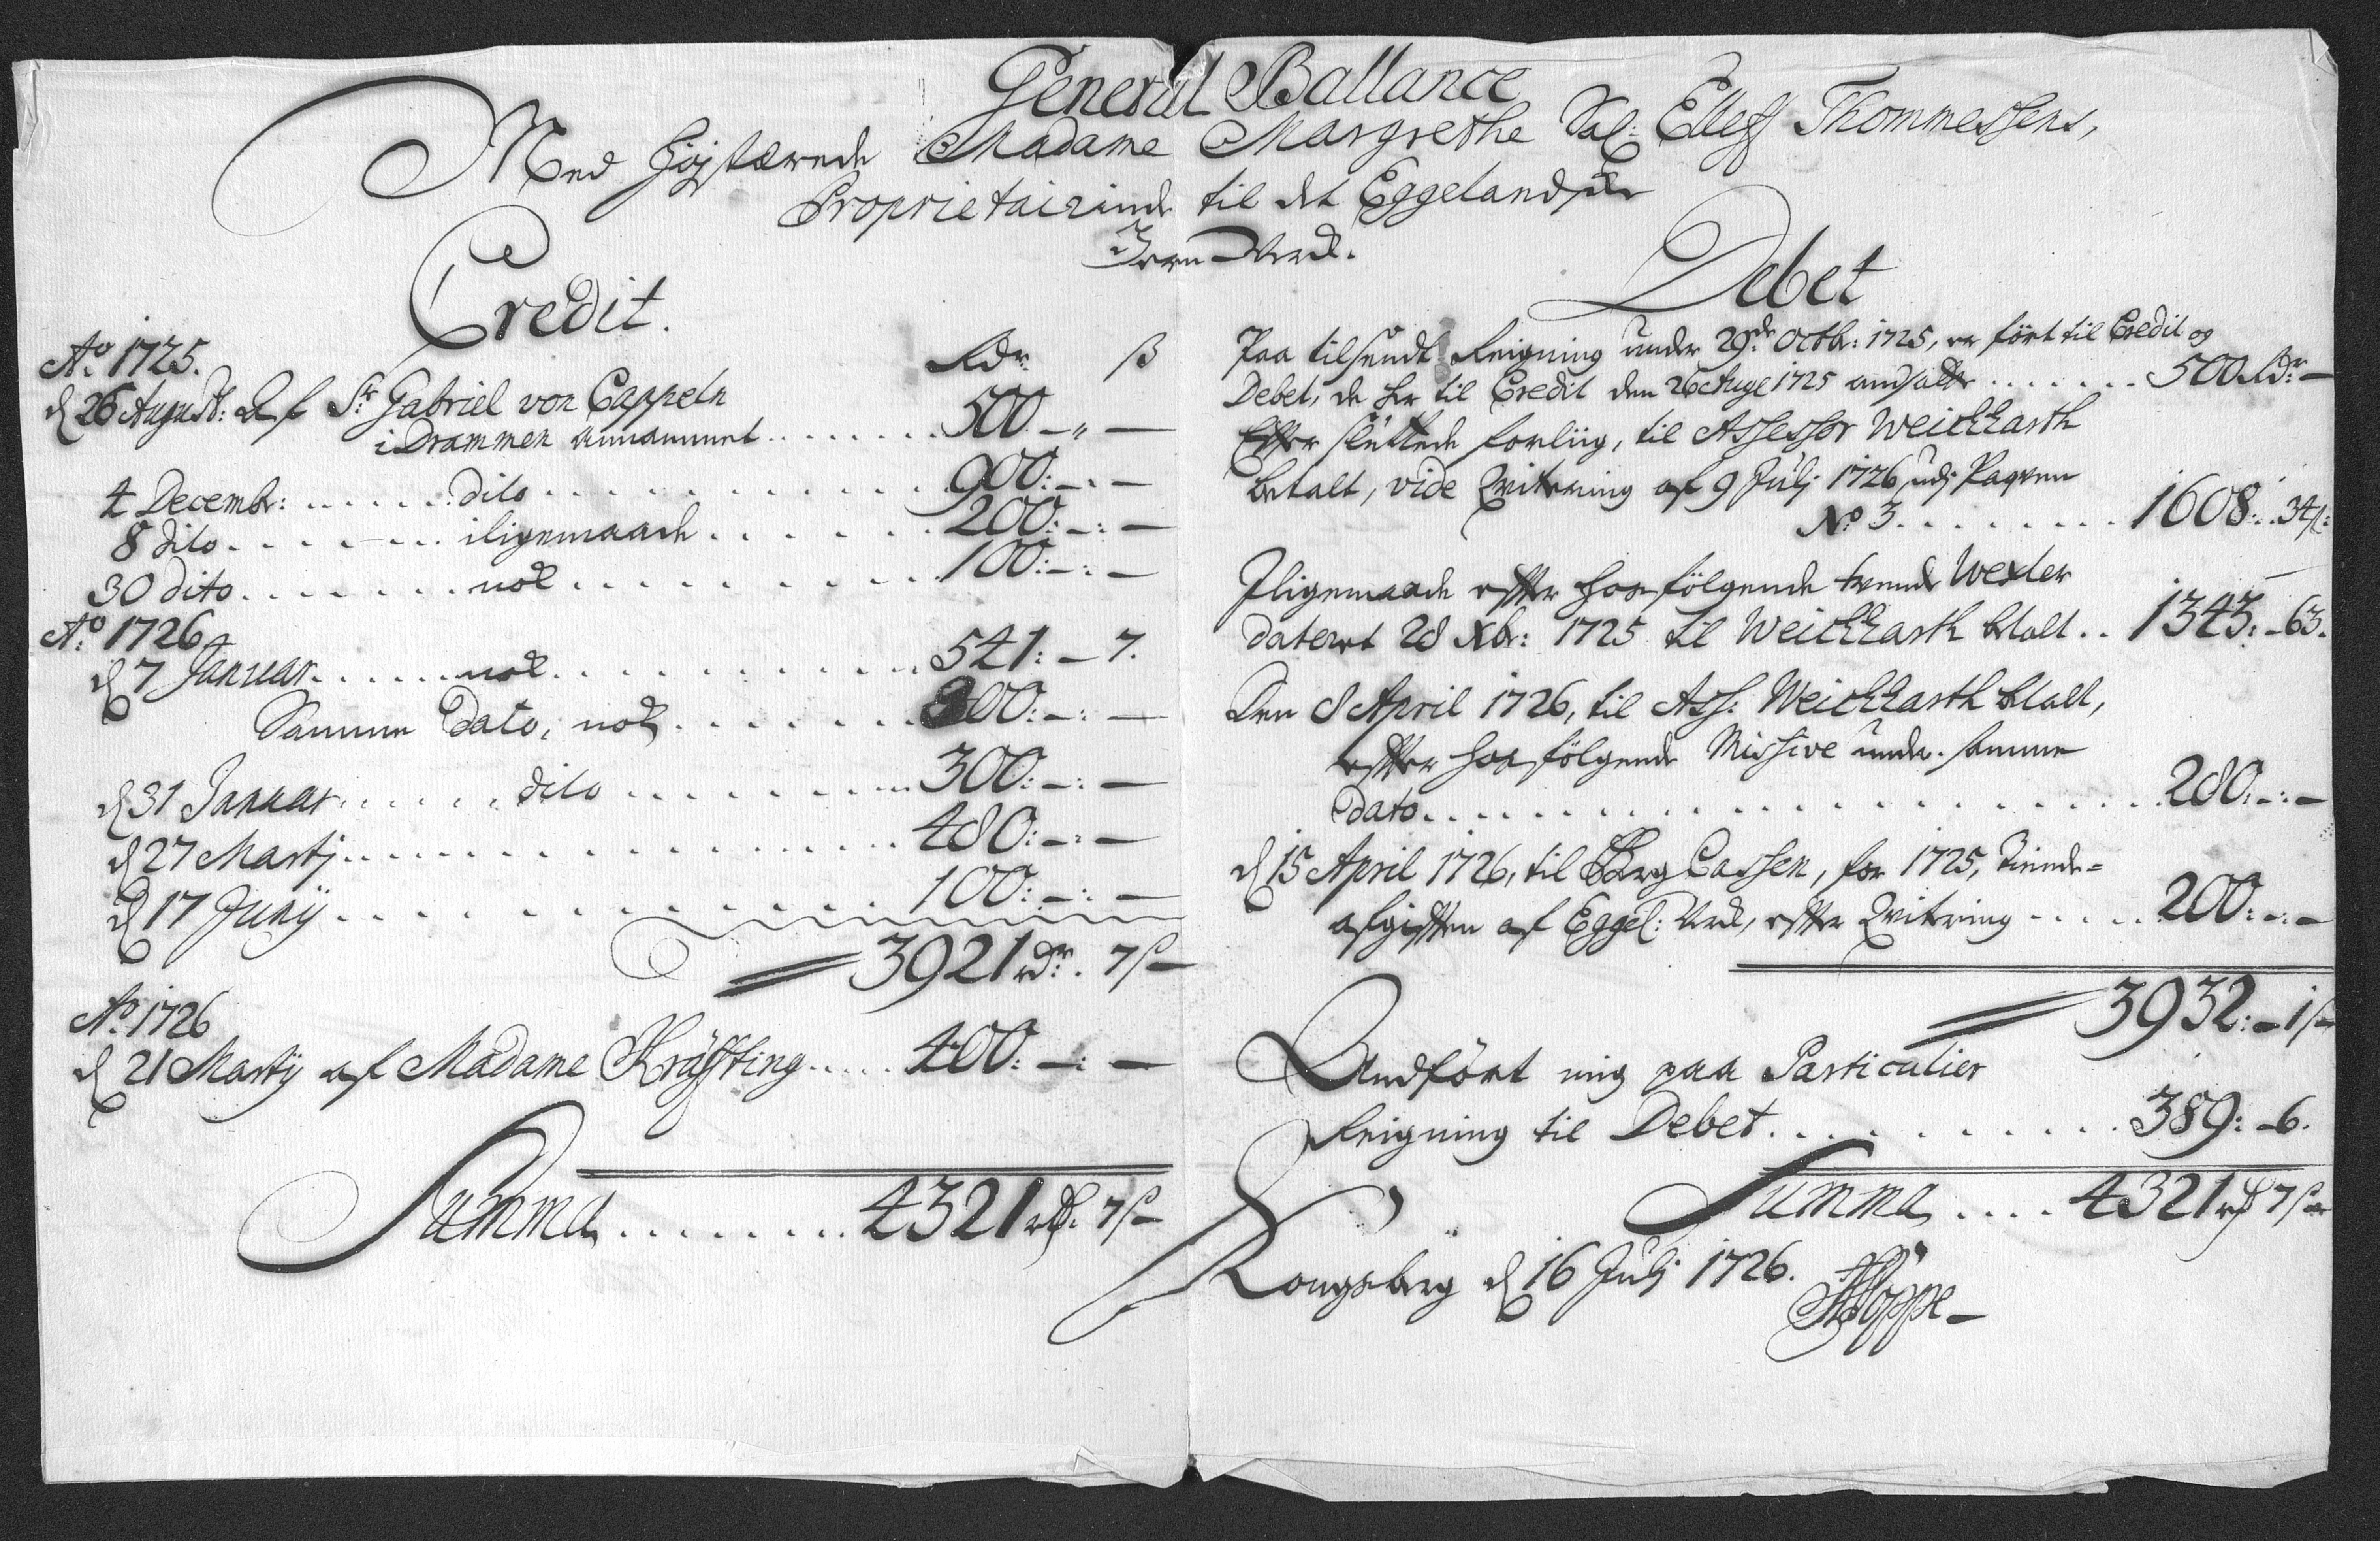 General Ballance
Med Højstærede Madame Margrethe Sal: Elleff Thommesens,
Proprietairinde til det Eggelandske
Jern-Verk.
Credit.
Aº. 1725. Rdr. ß
d 26 August: Af Sr. Gabriel von Cappeln
i Drammen annammet ....... 500 - „ -
4 Decembr: ...... dito ............ 900: - : -
8 dito ....... iligemaade ...... 200: - : -
30 dito ....... nok .......... 100: - : -
Aº. 1726
d 7 Januar ...... nok .......... 541: - 7.
Samme Dato, nok ....... 800: - : -
d 31 Januar ..... dito ........ 300: - : -
d 27 Martij ................ 480: - : -
d 17 Junij ................ 100: - : -
3921 rdr. 7 ß
Aº. 1726
d 21 Martij af Madame Kräfting ..... 400: - : -
Summa ........ 4321 rd. 7 ß
Debet
Paa tilsendt Reigning under 29de Octbr: 1725, er ført til Credit og
Debet, de her til Credit den 26 Aug 1725 andsatte ....... 500 Rdr -
Efter sluttede forliig, til Assessor Weichharth
betalt, vide Qvitering af 9 Julj 1726, udj Paqven
No. 3 ........ 1608: . 34 ß:
Iligemaade efter hosfølgende trende Wexler
dateret 28 Xbr: 1725 til Weichharth betalt .. 1343: - 63.
Den 8 April 1726, til Ass: Weichharth betalt,
efter hosfølgende Missive under samme
dato ................ 280: - : -
d 15 April 1726, til Berg Cassen, for 1725, Tiende-
afgiften af Eggel: Verk, efter Qvitering ..... 200: - : -
3932: - 1 ß
Andført mig paa Particulier
Reigning til Debet ........... 389: - 6.
Summa .... 4321 rd 7 ß
Kongsberg d 16 Julj 1726.
Hoppe